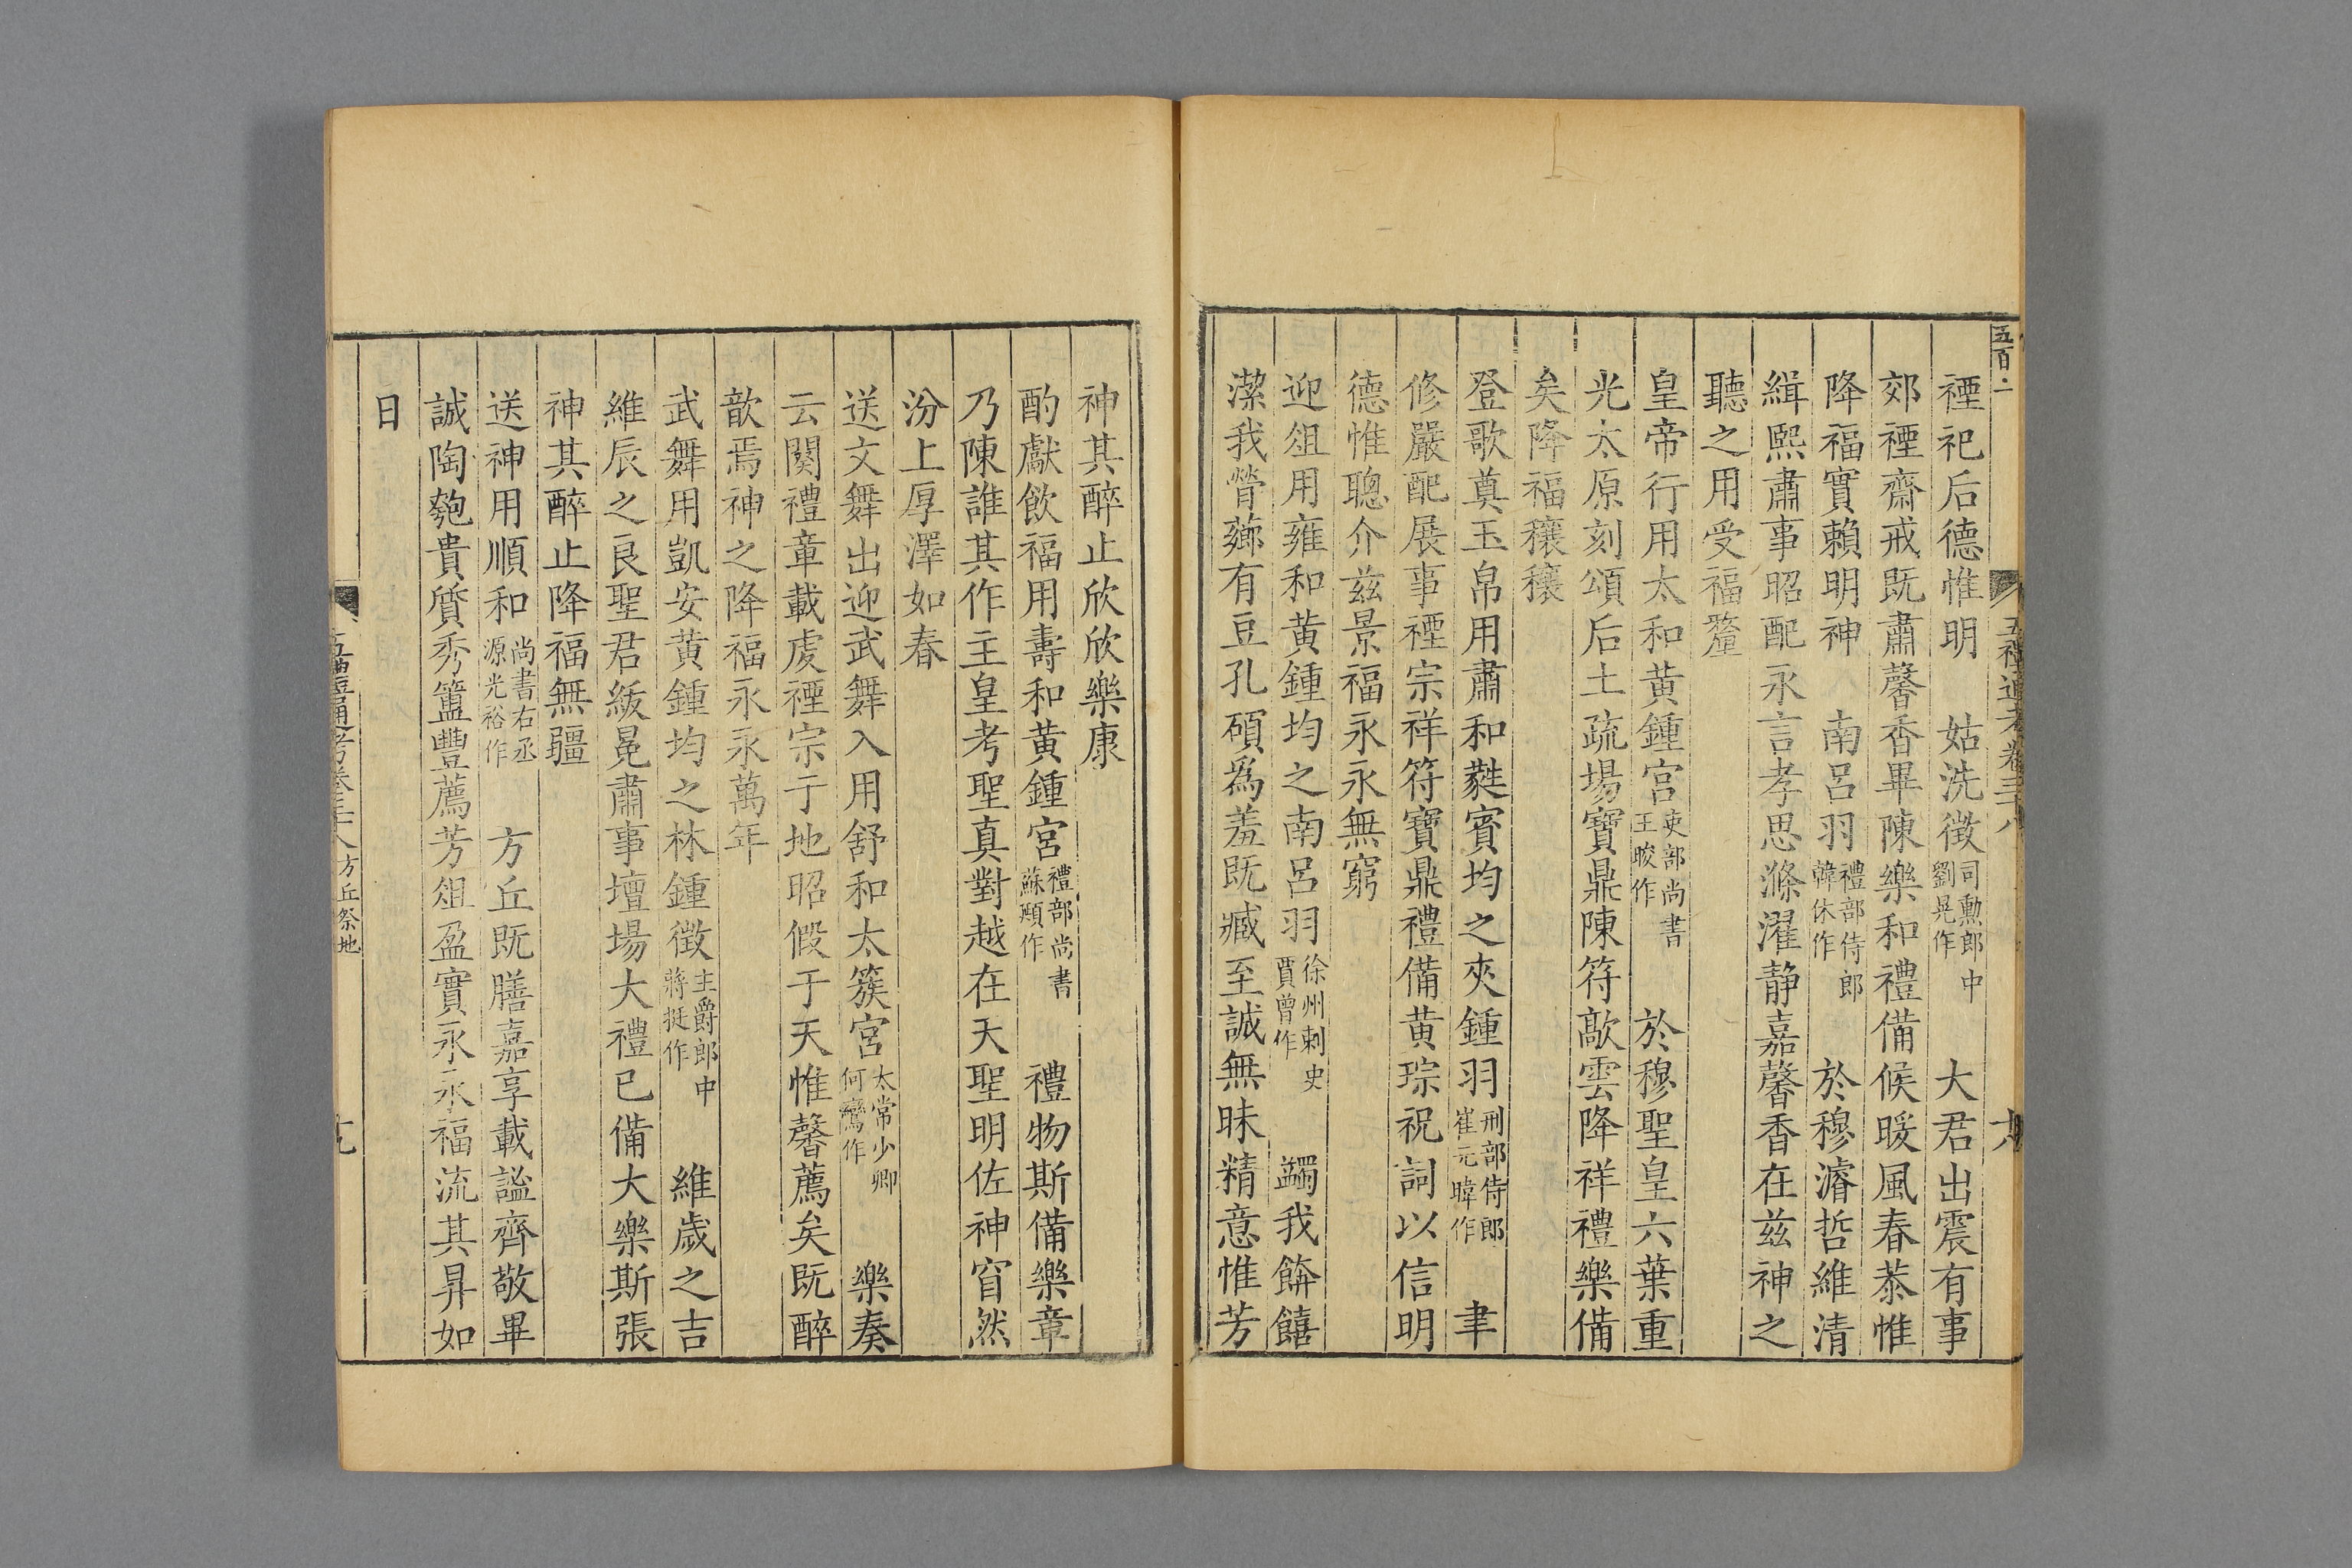 禋祀后德惟明　姑洗徵司勳郎中劉晃作　大君出震有事
郊禋齋戒既肅馨香畢陳樂和禮備候暖風春恭惟
降福實賴明神　南呂羽禮部侍郎韓休作　於穆濬哲維清
緝熙肅事昭配永言孝思滌濯静嘉馨香在兹神之
聽之用受福釐
皇帝行用太和黃鍾宮吏部尚書王晙作　於穆聖皇六葉重
光太原刻頌后土疏場寶鼎陳符歊雲降祥禮樂備
矣降福穰穰
登歌奠玉帛用肅和蕤賓均之夾鍾羽刑部侍郎崔元暐作　聿
修嚴配展事禋宗祥符寶鼎禮備黃琮祝詞以信明
德惟聰介兹景福永永無窮
迎俎用雍和黃鍾均之南呂羽徐州刺史賈曾作　蠲我餴饎
潔我膋薌有豆孔碩爲羞既臧至誠無昧精意惟芳
神其醉止欣欣樂康
酌獻飲福用壽和黃鍾宮禮部尚書蘇頲作　禮物斯備樂章
乃陳誰其作主皇考聖真對越在天聖明佐神窅然
汾上厚澤如春
送文舞出迎武舞入用舒和太簇宮太常少卿何鸞作　樂奏
云闋禮章載虔禋宗于地昭假于天惟馨薦矣既醉
歆焉神之降福永永萬年
武舞用凱安黃鍾均之林鍾徵主爵郎中蔣挺作　維歲之吉
維辰之良聖君紱冕肅事壇場大禮已備大樂斯張
神其醉止降福無疆
送神用順和尚書右丞源光裕作　方丘既膳嘉享載謐齊敬畢
誠陶匏貴質秀簠豐薦芳俎盈實永永福流其昇如
日
五禮通考卷三十八 方丘祭地